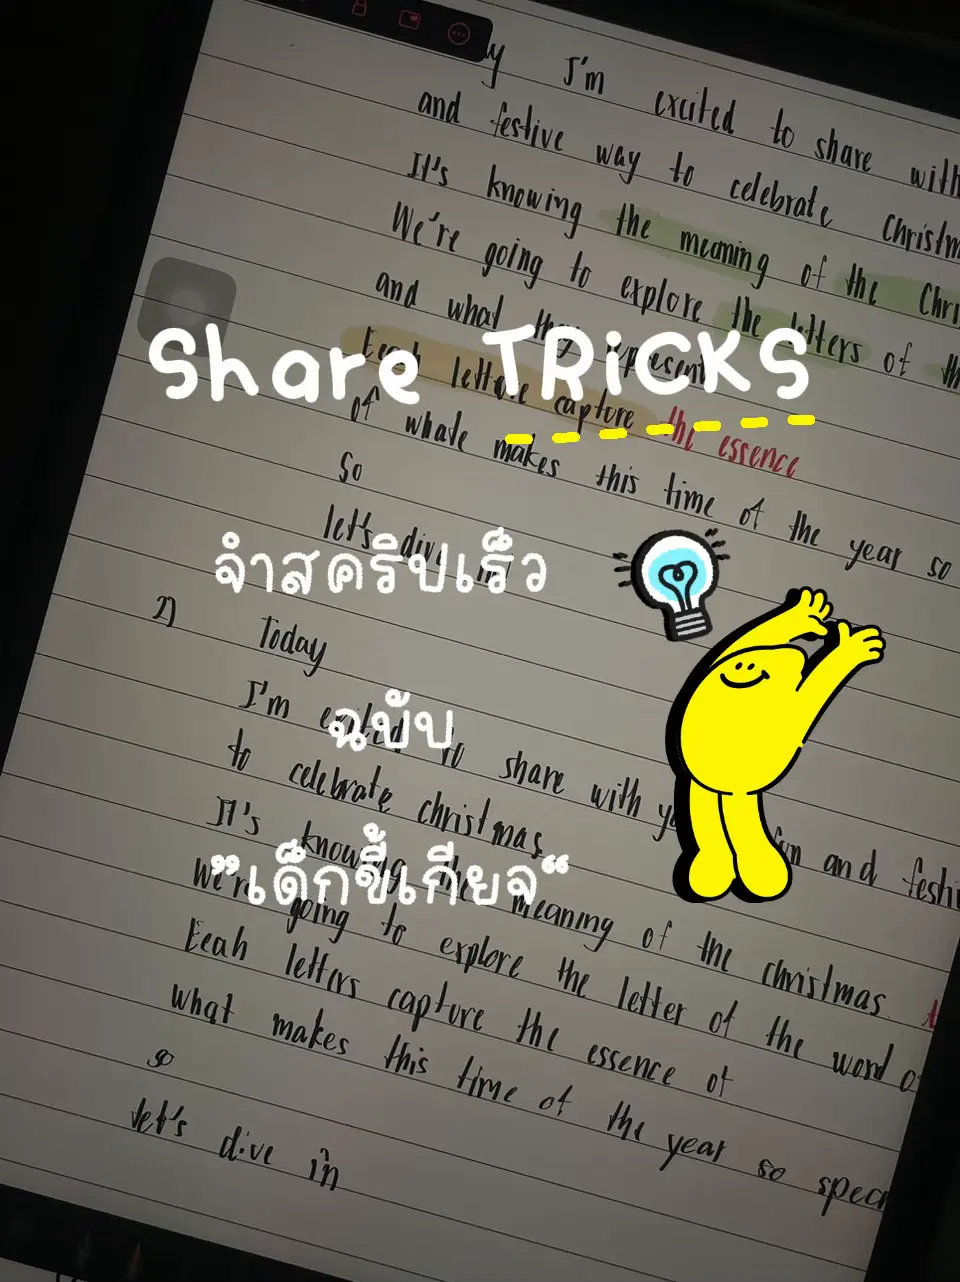 I'm excited to share with
and festive way to celebrate Christm
It's knowing the meaning of the Chri
We're going to explore the letters of th
and what they represent
Share TRiCKS
Eeah letters capture the essence
of whate makes this time of the year so
so
let's dive in
จำสคริปเร็ว
2) Today
I'm exited to share with yo fun and festiv
ฉบับ
to celebrate christmas
It's knowing the meaning of the christmas
"เด็กขี้เกียจ"
We're going to explore the letter of the word
Eeah letters capture the essence of
what makes this time of the year so spec
so
let's dive in